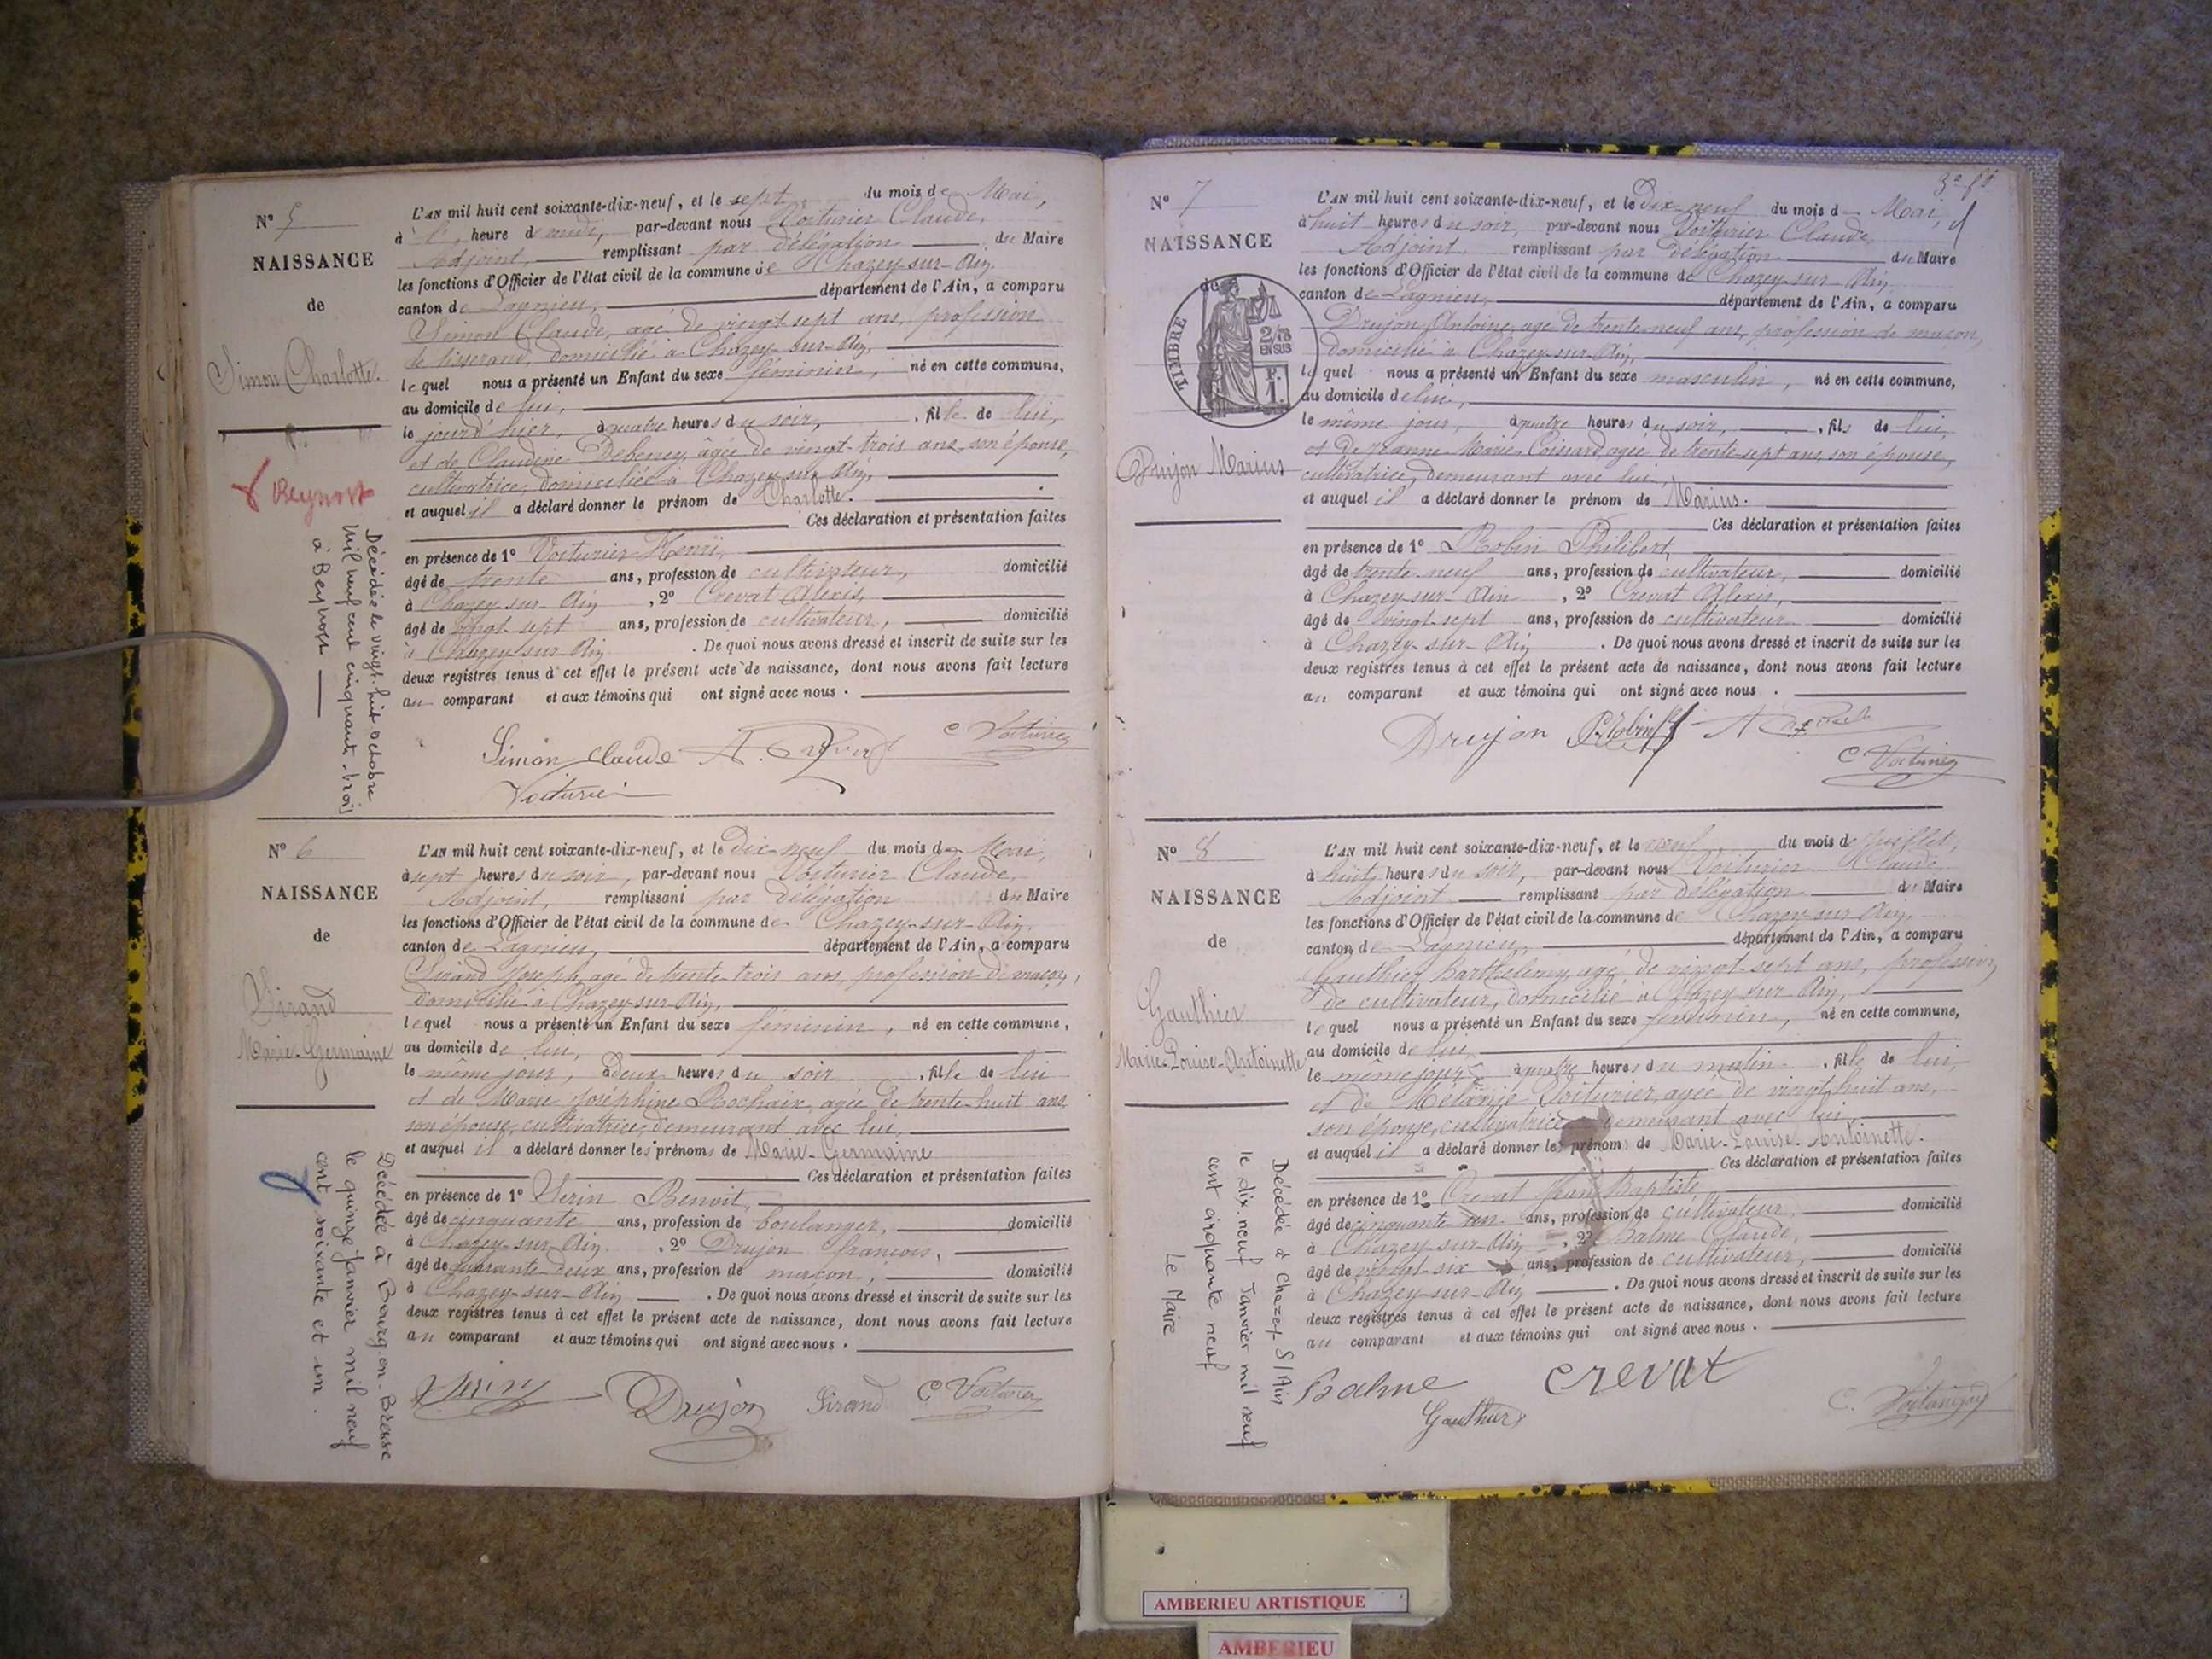 N° 5
NAISSANCE
de
Simon Charlotte.
Beynost
Décédée le vingt-huit octobre
mil neuf cent cinquante-trois
à Beynost
L'AN mil huit cent soixante-dix-neuf, et le sept du mois de Mai,
à heure de midi, par-devant nous Voiturier Claude,
Adjoint, remplissant par délégation du Maire
les fonctions d'Officier de l'état civil de la commune de Chazey-sur-Ain,
canton de Lagnieu, département de l'Ain, a comparu
Simon Claude, agé de vingt-sept ans, profession
de tisserand, domicilié à Chazey-sur-Ain,
lequel nous a présenté un Enfant du sexe féminin, né en cette commune,
au domicile de lui,
le jour d'hier, à quatre heures du soir, , fille de lui,
et de Claudine Debeney, âgée de vingt-trois ans, son épouse,
cultivatrice, domiciliée à Chazey-sur-Ain,
et auquel il a déclaré donner le prénom de Charlotte.
Ces déclaration et présentation faites
en présence de 1° Voiturier Henri,
âgé de trente ans, profession de cultivateur, domicilié
à Chazey-sur-Ain , 2° Crevat Alexis,
âgé de vingt-sept ans, profession de cultivateur, domicilié
à Chazey-sur-Ain . De quoi nous avons dressé et inscrit de suite sur les
deux registres tenus à cet effet le présent acte de naissance, dont nous avons fait lecture
au comparant et aux témoins qui ont signé avec nous.
Simon claude A. Crevat C Voiturier
Voiturier
N° 6
NAISSANCE
de
Sirand
Marie-Germaine
Décédée à Bourg-en-Bresse
le quinze janvier mil neuf
cent soixante et un.
L'AN mil huit cent soixante-dix-neuf, et le Dix-neuf du mois de Mai,
à sept heures du soir, par-devant nous Voiturier Claude,
Adjoint, remplissant par délégation du Maire
les fonctions d'Officier de l'état civil de la commune de Chazey-sur-Ain,
canton de Lagnieu, département de l'Ain, a comparu
Sirand Joseph, agé de trente-trois ans, profession de maçon,
domicilié à Chazey-sur-Ain,
lequel nous a présenté un Enfant du sexe féminin, né en cette commune,
au domicile de lui,
le même jour, à deux heures du soir , fille de lui
et de Marie Joséphine Rochaix, agée de trente-huit ans,
son épouse, cultivatrice, demeurant avec lui,
et auquel il a déclaré donner les prénoms de Marie-Germaine
Ces déclaration et présentation faites
en présence de 1° Benoit,
âgé de cinquante ans, profession de boulanger, domicilié
à Chazey-sur-Ain , 2° Drujon françois,
âgé de quarante-deux ans, profession de maçon, domicilié
à Chazey-sur-Ain . De quoi nous avons dressé et inscrit de suite sur les
deux registres tenus à cet effet le présent acte de naissance, dont nous avons fait lecture
au comparant et aux témoins qui ont signé avec nous.
Drujon Sirand C Voiturier
N° 7
NAISSANCE
de
TIMBRE
2/10
EN SUS
F.
1.
Drujon Marius
L'AN mil huit cent soixante-dix-neuf, et le Dix-neuf du mois de Mai,
à huit heures du soir, par-devant nous Voiturier Claude,
Adjoint remplissant par délégation du Maire
les fonctions d'Officier de l'état civil de la commune de Chazey-sur-Ain,
canton de Lagnieu, département de l'Ain, a comparu
Drujon Antoine, agé de trente-neuf ans, profession de maçon,
domicilié à Chazey-sur-Ain,
lequel nous a présenté un Enfant du sexe masculin, né en cette commune,
au domicile de lui,
le même jour, à quatre heures du soir, , fils de lui,
et de Jeanne Marie agée de trente-sept ans, son épouse,
cultivatrice, demeurant avec lui,
et auquel il a déclaré donner le prénom de Marius.
Ces déclaration et présentation faites
en présence de 1° Robin Philibert,
âgé de trente-neuf ans, profession de cultivateur, domicilié
à Chazey-sur-Ain , 2° Crevat Alexis,
âgé de vingt-sept ans, profession de cultivateur domicilié
à Chazey-sur-Ain . De quoi nous avons dressé et inscrit de suite sur les
deux registres tenus à cet effet le présent acte de naissance, dont nous avons fait lecture
au comparant et aux témoins qui ont signé avec nous.
Drujon P. Robin A Crevat
C Voiturier
N° 8
NAISSANCE
de
Gauthier
Marie-Louise-Antoinette
Décédée à Chazey S/Ain
le dix neuf Janvier mil neuf
cent cinquante neuf
Le Maire
L'AN mil huit cent soixante-dix-neuf, et le neuf du mois de Juillet,
à huit heures du soir, par-devant nous Voiturier Claude
Adjoint remplissant par délégation du Maire
les fonctions d'Officier de l'état civil de la commune de Chazey-sur-Ain,
canton de Lagnieu, département de l'Ain, a comparu
Gauthier Barthélemy, agé de vingt-sept ans, profession
de cultivateur, domicilié à Chazey-sur-Ain,
lequel nous a présenté un Enfant du sexe féminin, né en cette commune,
au domicile de lui,
le même jour, à quatre heures du matin , fille de lui,
et de Mélanie Voiturier, agée de vingt-huit ans,
son épouse, cultivatrice, demeurant avec lui,
et auquel il a déclaré donner les prénoms de Marie-Louise-Antoinette.
Ces déclaration et présentation faites
en présence de 1° Crevat Jean Baptiste
âgé de cinquante-un ans, profession de cultivateur, domicilié
à Chazey-sur-Ain , 2° Balme Claude,
âgé de vingt-six ans, profession de cultivateur, domicilié
à Chazey-sur-Ain . De quoi nous avons dressé et inscrit de suite sur les
deux registres tenus à cet effet le présent acte de naissance, dont nous avons fait lecture
au comparant et aux témoins qui ont signé avec nous.
Balme crevat
Gauthier C. Voiturier
AMBERIEU ARTISTIQUE
AMBERIEU